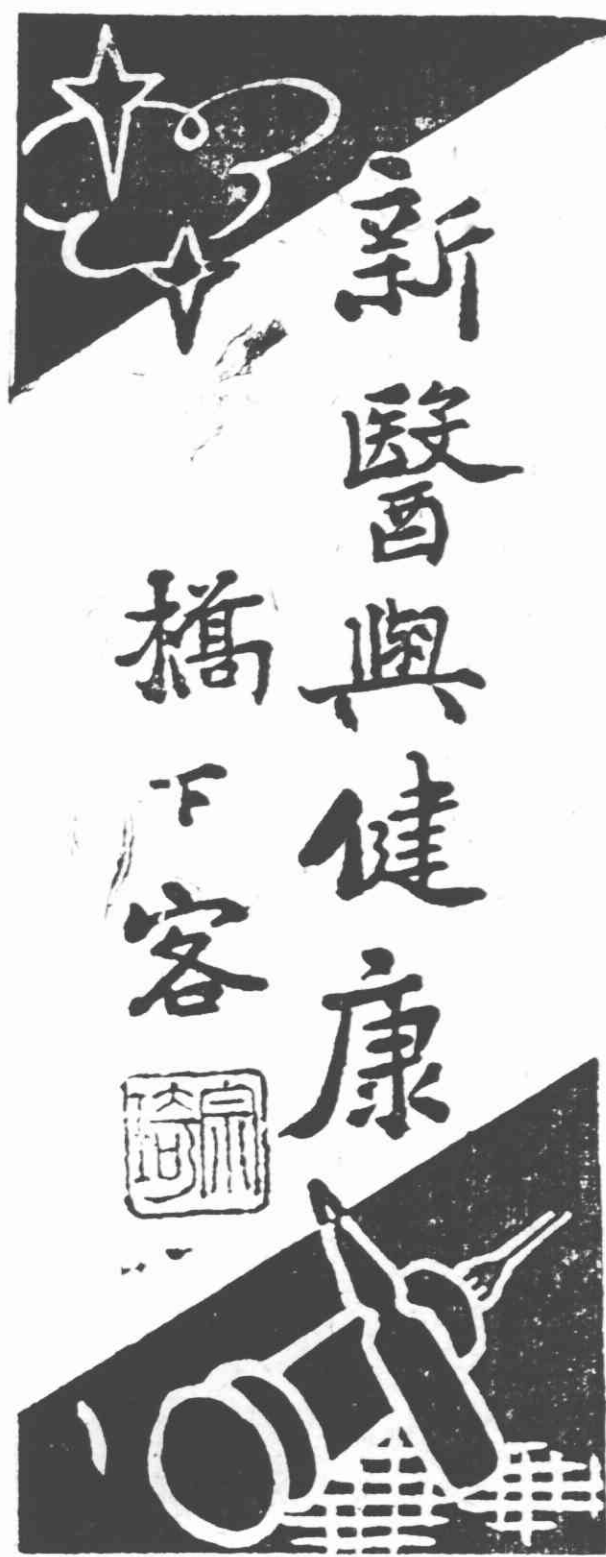 新醫與健康
橋下客